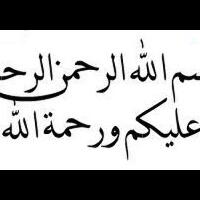 سم الله الرحمن الرح
عليكم ورحمة الله